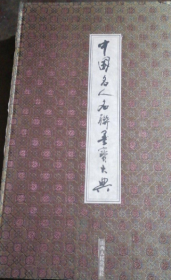 中国名人名联墨宝大典